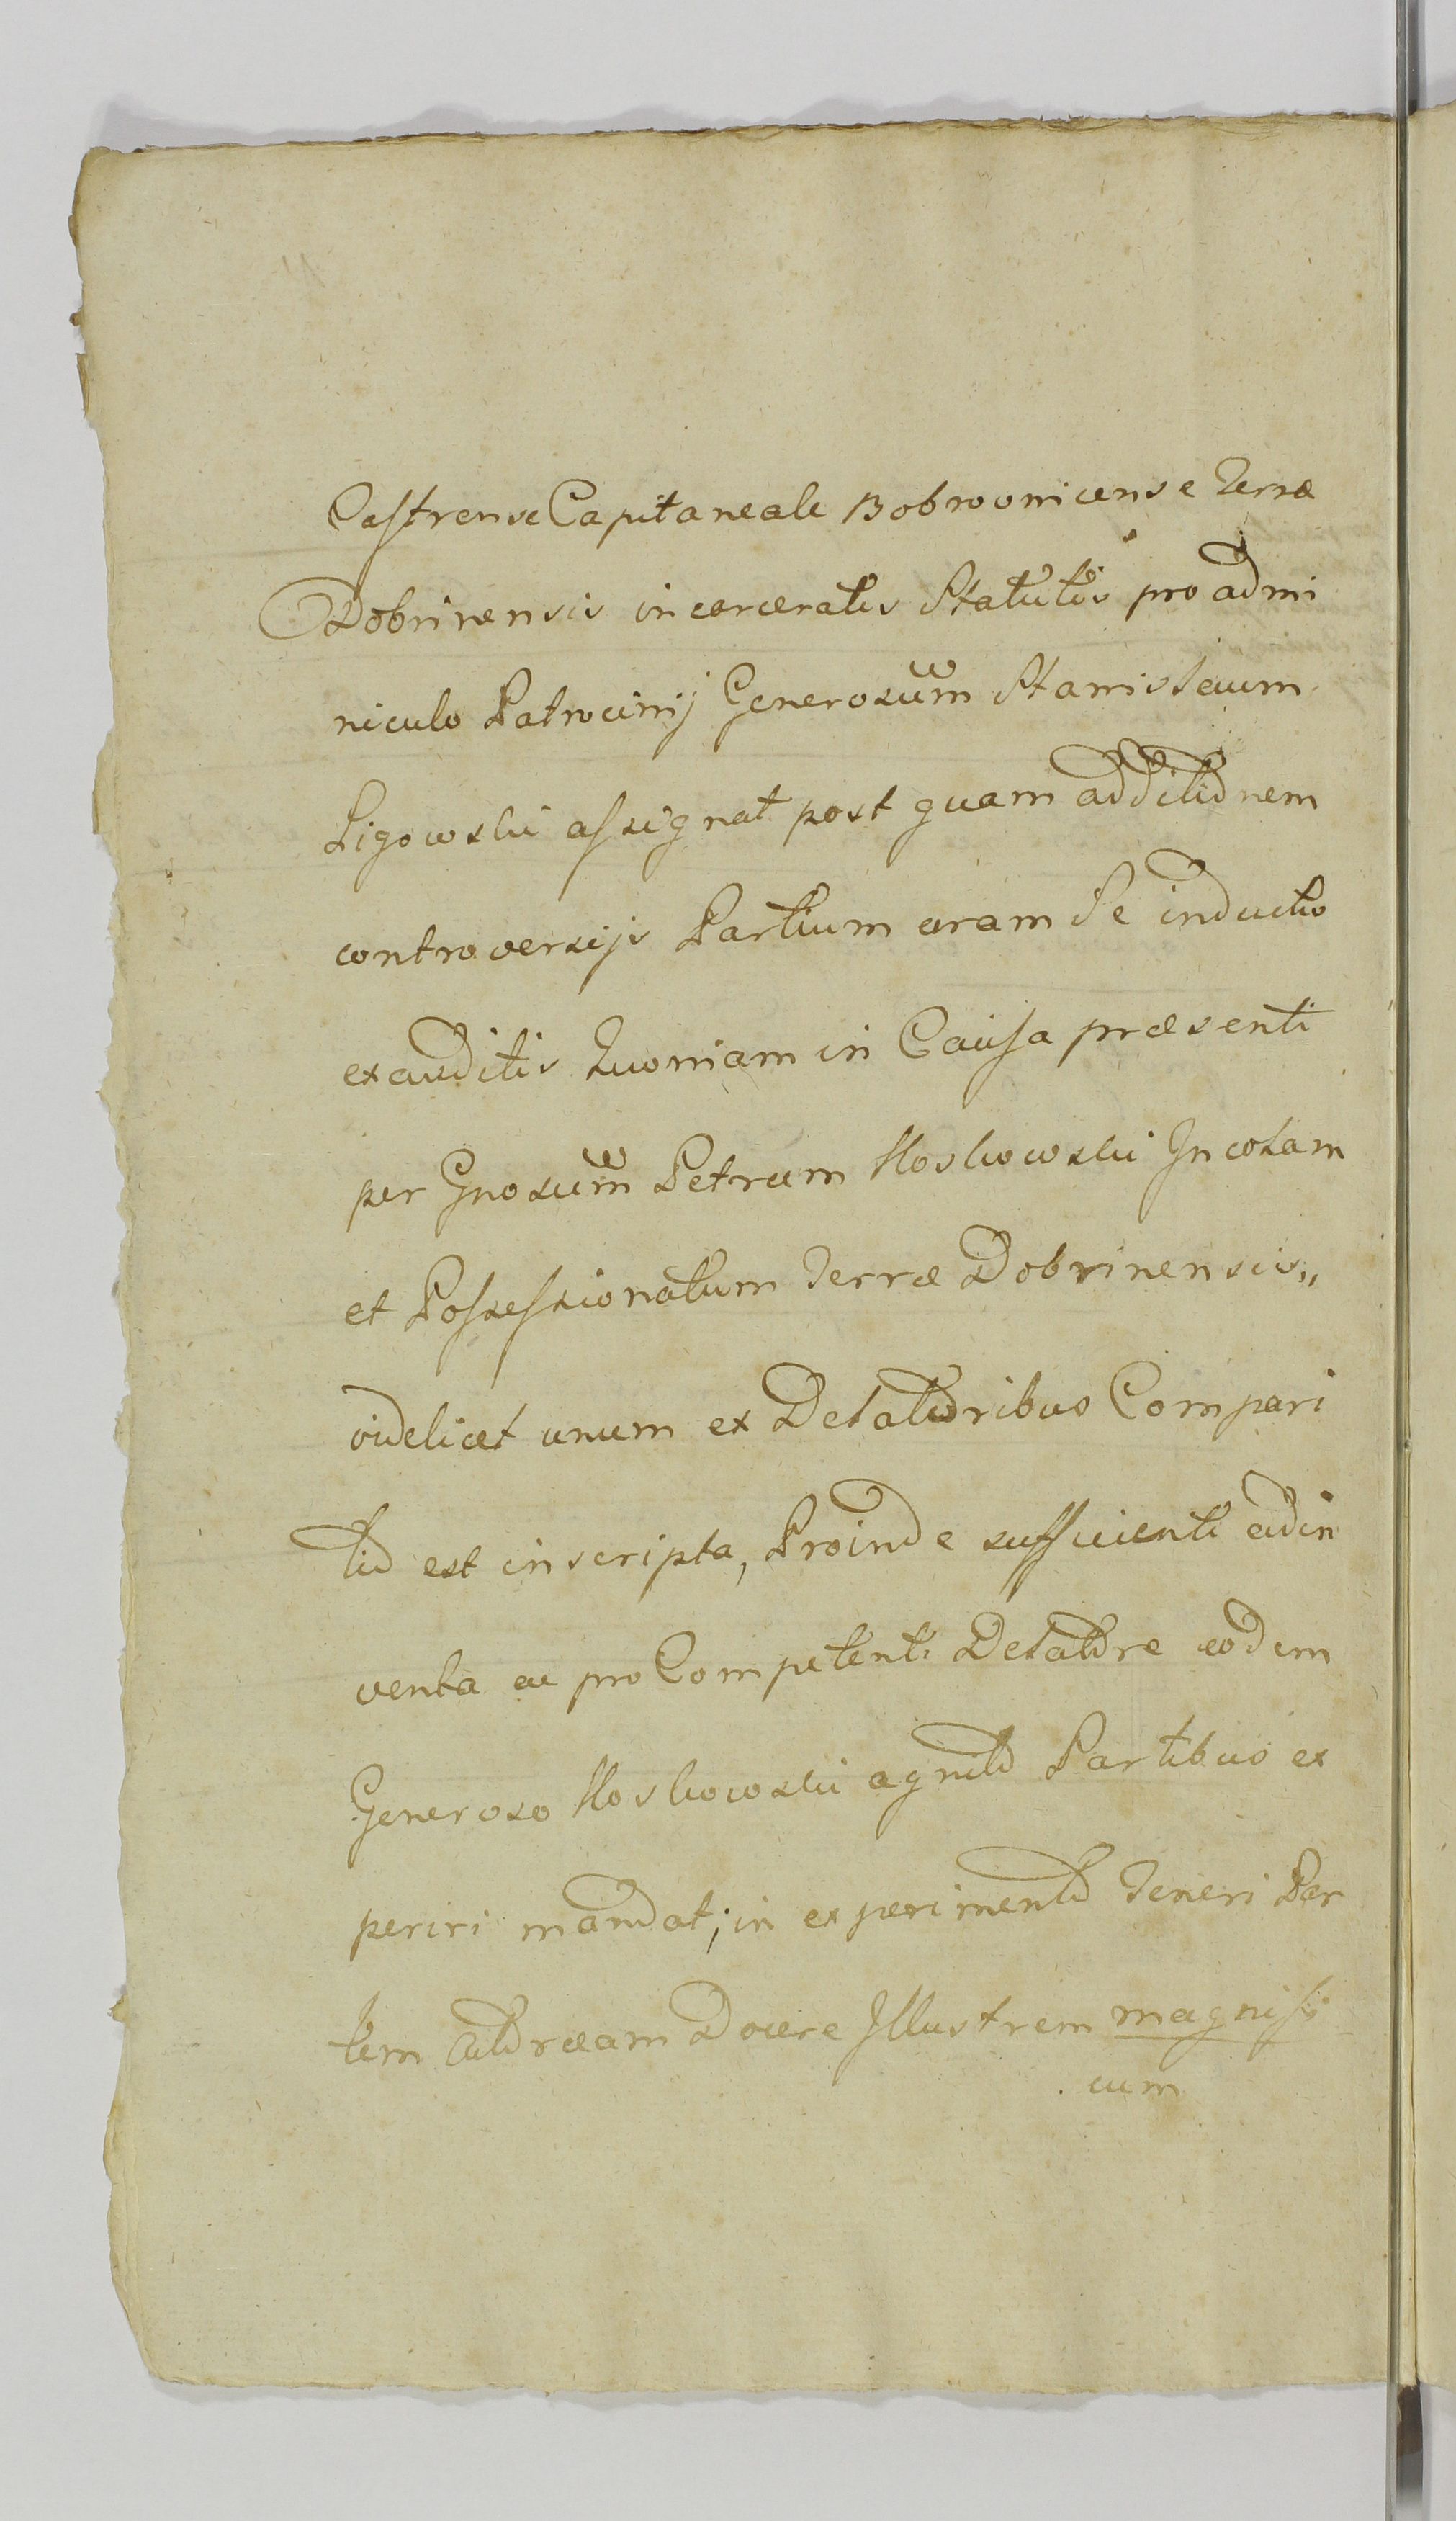 Castrense Capitaneale Bobrovnicense Terræ
Dobrinensis incarceratis Statutis pro admi
niculo Patrocinij Generosum Stanislaum
Ligowski assignat post quam additionem
controversijs Partium coram Se inductis
exauditis Quoniam in Causa præsenti
per Gnosum Petrum Koskowski Incolam
et Possessionatum Terræ Dobrinensis„
videlicet unum ex Delatoribus Compari
tio est inscripta, Proinde sufficienti adin
venta ac pro Competenti Delatore eodem
Generoso Koskowski agnito Partibus ex
periri mandat; in experimento Teneri Par
tem Actoream Docere Illustrem magnifi
cum